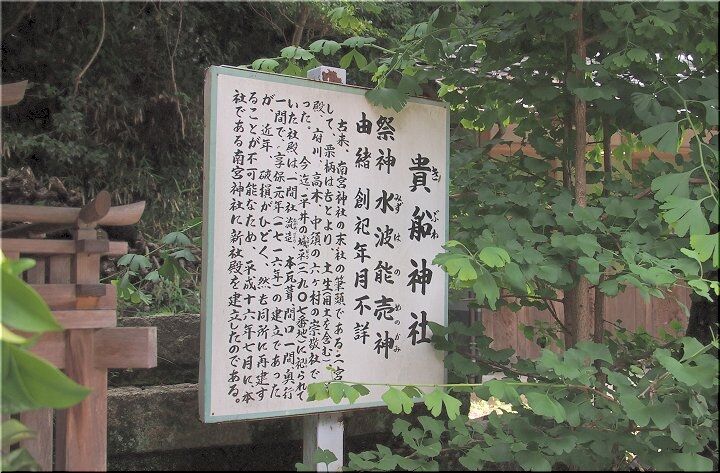 貴船神社
き ぶね
祭神 水波能売神
みずはのめのかみ
由緒 創祀年月不詳
古来、南宮神社の末社の筆頭である二宮
して、栗柄は舌とより、土生(用土を含む)
殿、府川、高木、中須の六ヶ村の崇敬社で
った。今迄、平井の端(二九〇七番地)に祀られて
いた社殿は一間社流造、本瓦葺間口一間奥行
一間で、享保元年(一七一六年)の建立であった
が、近年、破損がひどく、然も同所に再建す
ることが不可能なため、平成十六年七月に、本
社である南宮神社に新社殿を建立したのである。